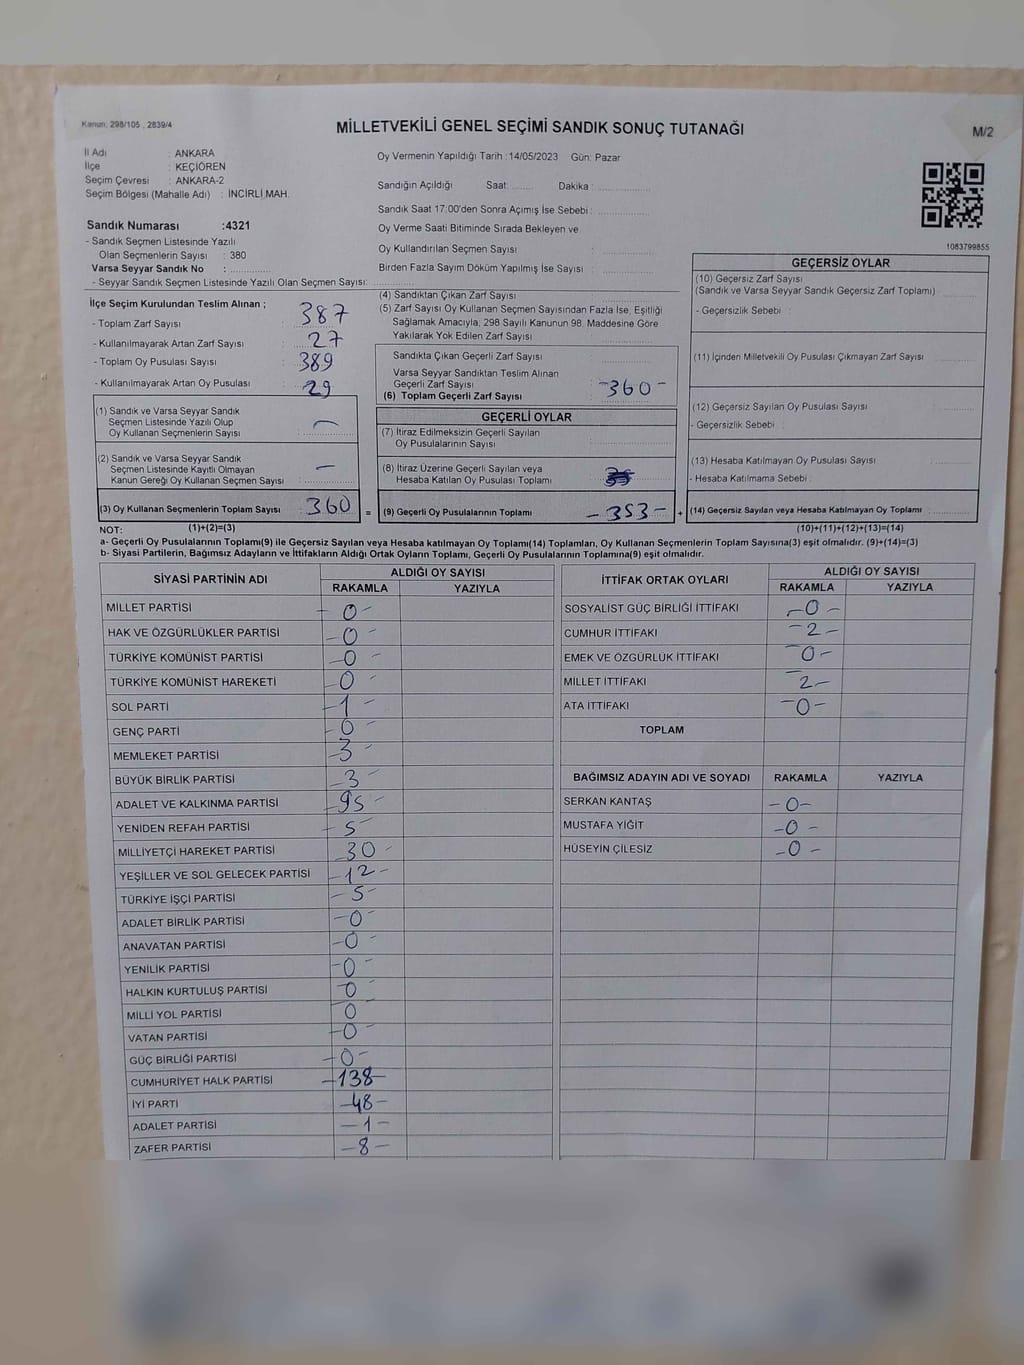 Kanun: 298/105 , 2839/4
MİLLETVEKİLİ GENEL SEÇİMİ SANDIK SONUÇ TUTANAĞI
M/2
İl Adı : ANKARA
İlçe : KEÇİÖREN
Seçim Çevresi : ANKARA-2
Seçim Bölgesi (Mahalle Adı) : İNCİRLİ MAH.
Oy Vermenin Yapıldığı Tarih :14/05/2023 Gün: Pazar
Sandığın Açıldığı Saat: ........ Dakika : ................
Sandık Saat 17:00'den Sonra Açımış İse Sebebi : ................
Oy Verme Saati Bitiminde Sırada Bekleyen ve
Oy Kullandırılan Seçmen Sayısı : ................
Birden Fazla Sayım Döküm Yapılmış İse Sayısı : ................
1083799855
Sandık Numarası :4321
- Sandık Seçmen Listesinde Yazılı
Olan Seçmenlerin Sayısı : 380
Varsa Seyyar Sandık No : ................
- Seyyar Sandık Seçmen Listesinde Yazılı Olan Seçmen Sayısı: ................
İlçe Seçim Kurulundan Teslim Alınan ;
- Toplam Zarf Sayısı : 387
- Kullanılmayarak Artan Zarf Sayısı : 27
- Toplam Oy Pusulası Sayısı : 389
- Kullanılmayarak Artan Oy Pusulası : 29
(1) Sandık ve Varsa Seyyar Sandık
Seçmen Listesinde Yazılı Olup
Oy Kullanan Seçmenlerin Sayısı : —
(2) Sandık ve Varsa Seyyar Sandık
Seçmen Listesinde Kayıtlı Olmayan
Kanun Gereği Oy Kullanan Seçmen Sayısı : —
(3) Oy Kullanan Seçmenlerin Toplam Sayısı : 360
(1)+(2)=(3)
(4) Sandıktan Çıkan Zarf Sayısı : ................
(5) Zarf Sayısı Oy Kullanan Seçmen Sayısından Fazla İse, Eşitliği
Sağlamak Amacıyla; 298 Sayılı Kanunun 98. Maddesine Göre
Yakılarak Yok Edilen Zarf Sayısı : ................
Sandıkta Çıkan Geçerli Zarf Sayısı : ................
Varsa Seyyar Sandıktan Teslim Alınan
Geçerli Zarf Sayısı
(6) Toplam Geçerli Zarf Sayısı : -360-
GEÇERLİ OYLAR
(7) İtiraz Edilmeksizin Geçerli Sayılan
Oy Pusulalarının Sayısı : ................
(8) İtiraz Üzerine Geçerli Sayılan veya
Hesaba Katılan Oy Pusulası Toplamı :
= (9) Geçerli Oy Pusulalarının Toplamı : -353- +
GEÇERSİZ OYLAR
(10) Geçersiz Zarf Sayısı
(Sandık ve Varsa Seyyar Sandık Geçersiz Zarf Toplamı) : ........
- Geçersizlik Sebebi :
(11) İçinden Milletvekili Oy Pusulası Çıkmayan Zarf Sayısı : ........
(12) Geçersiz Sayılan Oy Pusulası Sayısı : ........
- Geçersizlik Sebebi :
(13) Hesaba Katılmayan Oy Pusulası Sayısı : ........
- Hesaba Katılmama Sebebi :
(14) Geçersiz Sayılan veya Hesaba Katılmayan Oy Toplamı : ........
(10)+(11)+(12)+(13)=(14)
NOT:
a- Geçerli Oy Pusulalarının Toplamı(9) ile Geçersiz Sayılan veya Hesaba katılmayan Oy Toplamı(14) Toplamları, Oy Kullanan Seçmenlerin Toplam Sayısına(3) eşit olmalıdır. (9)+(14)=(3)
b- Siyasi Partilerin, Bağımsız Adayların ve İttifakların Aldığı Ortak Oyların Toplamı, Geçerli Oy Pusulalarının Toplamına(9) eşit olmalıdır.
SİYASİ PARTİNİN ADI ALDIĞI OY SAYISI
RAKAMLA YAZIYLA
MİLLET PARTİSİ -0-
HAK VE ÖZGÜRLÜKLER PARTİSİ -0-
TÜRKİYE KOMÜNİST PARTİSİ -0-
TÜRKİYE KOMÜNİST HAREKETİ -0-
SOL PARTİ -1-
GENÇ PARTİ -0-
MEMLEKET PARTİSİ -3-
BÜYÜK BİRLİK PARTİSİ -3-
ADALET VE KALKINMA PARTİSİ -95-
YENİDEN REFAH PARTİSİ -5-
MİLLİYETÇİ HAREKET PARTİSİ -30-
YEŞİLLER VE SOL GELECEK PARTİSİ -12-
TÜRKİYE İŞÇİ PARTİSİ -5-
ADALET BİRLİK PARTİSİ -0-
ANAVATAN PARTİSİ -0-
YENİLİK PARTİSİ -0-
HALKIN KURTULUŞ PARTİSİ -0-
MİLLİ YOL PARTİSİ 0
VATAN PARTİSİ -0-
GÜÇ BİRLİĞİ PARTİSİ -0-
CUMHURİYET HALK PARTİSİ -138-
İYİ PARTİ -48-
ADALET PARTİSİ -1-
ZAFER PARTİSİ -8-
İTTİFAK ORTAK OYLARI ALDIĞI OY SAYISI
RAKAMLA YAZIYLA
SOSYALİST GÜÇ BİRLİĞİ İTTİFAKI -0-
CUMHUR İTTİFAKI -2-
EMEK VE ÖZGÜRLÜK İTTİFAKI -0-
MİLLET İTTİFAKI -2-
ATA İTTİFAKI -0-
TOPLAM
BAĞIMSIZ ADAYIN ADI VE SOYADI RAKAMLA YAZIYLA
SERKAN KANTAŞ -0-
MUSTAFA YİĞİT -0-
HÜSEYİN ÇİLESİZ -0-